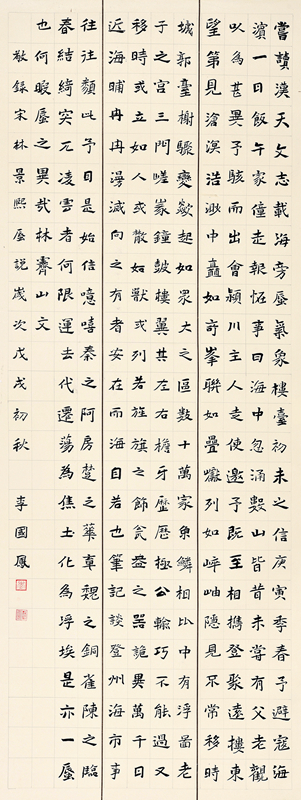 嘗讀漢天文志載海旁蜃氣象樓臺初未之信庚寅季春予避寇海
濱一日飯午家僮走報怪事曰海中忽涌數山皆昔未嘗有父老觀
以為甚異予駭而出會潁川主人走使邀予既至相攜登聚遠樓東
望第見滄溟浩渺中矗如奇峯聯如疊巘列如崒岫隱見不常移時
城郭臺榭驟變欻起如眾大之區數十萬家魚鱗相比中有浮圖老
子之宮三門嵯峩鐘鼓樓翼其左右檐牙歷歷極公輸巧不能過又
移時或立如人或散如獸或列若旌旗之飾瓮盎之器詭異萬千日
近海晡冉冉漫滅向之有者安在而海自若也筆記談登州海市事
往往類此予因是始信噫嘻秦之阿房楚之華章魏之銅雀陳之臨
春結綺突兀凌雲者何限運去代遷蕩為焦土化為浮埃是亦一蜃
也何暇蜃之異哉林霽山文
敬錄宋林景熙蜃說歲次戊戌初秋 李國鳳